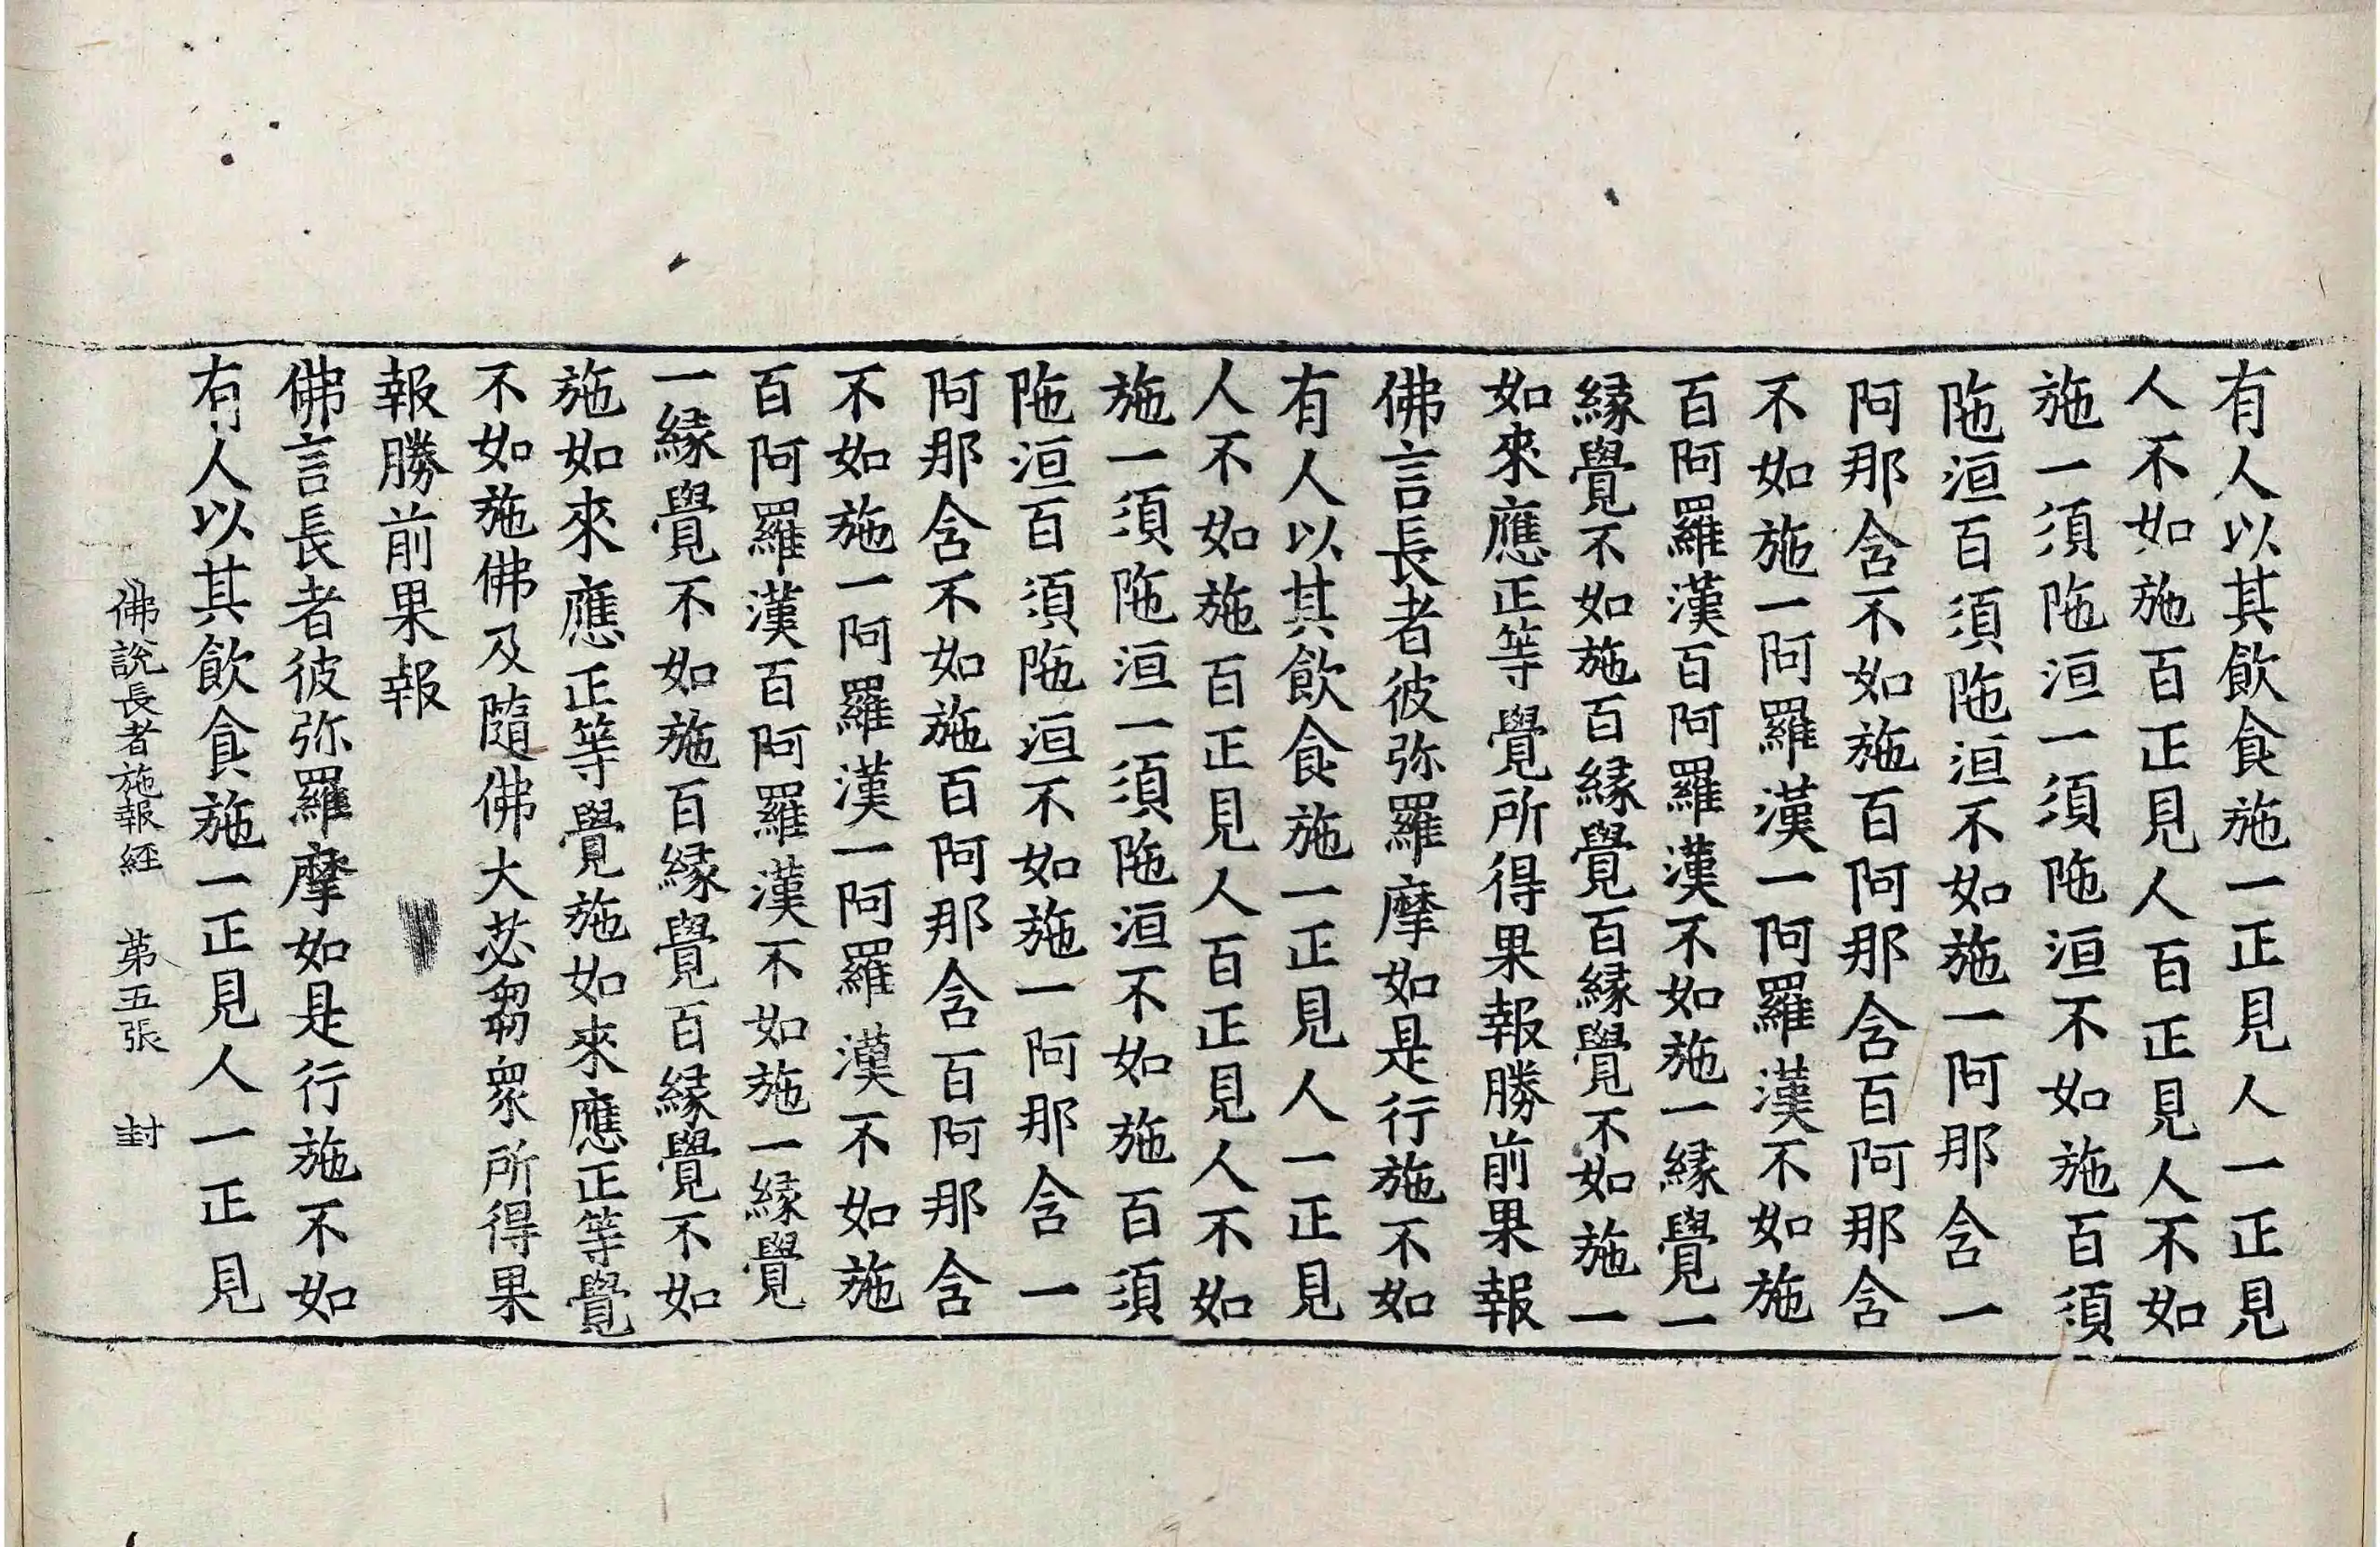 有人以其飲食施一正見人一正見
人不如施百正見人百正見人不如
施一須陁洹一須陁洹不如施百須
陁洹百須陁洹不如施一阿那含一
阿那含不如施百阿那含百阿那含
不如施一阿羅漢一阿羅漢不如施
百阿羅漢百阿羅漢不如施一緣覺一
緣覺不如施百緣覺百緣覺不如施一
如來應正等覺所得果報勝前果報
佛言長者彼弥羅摩如是行施不如
有人以其飲食施一正見人一正見
人不如施百正見人百正見人不如
施一須陁洹一須陁洹不如施百須
陁洹百須陁洹不如施一阿那含一
阿那含不如施百阿那含百阿那含
不如施一阿羅漢一阿羅漢不如施
百阿羅漢百阿羅漢不如施一緣覺
一緣覺不如施百緣覺百緣覺不如
施如來應正等覺施如來應正等覺
不如施佛及隨佛大苾芻衆所得果
報勝前果報
佛言長者彼弥羅摩如是行施不如
有人以其飲食施一正見人一正見
佛說長者施報經 第五張 封